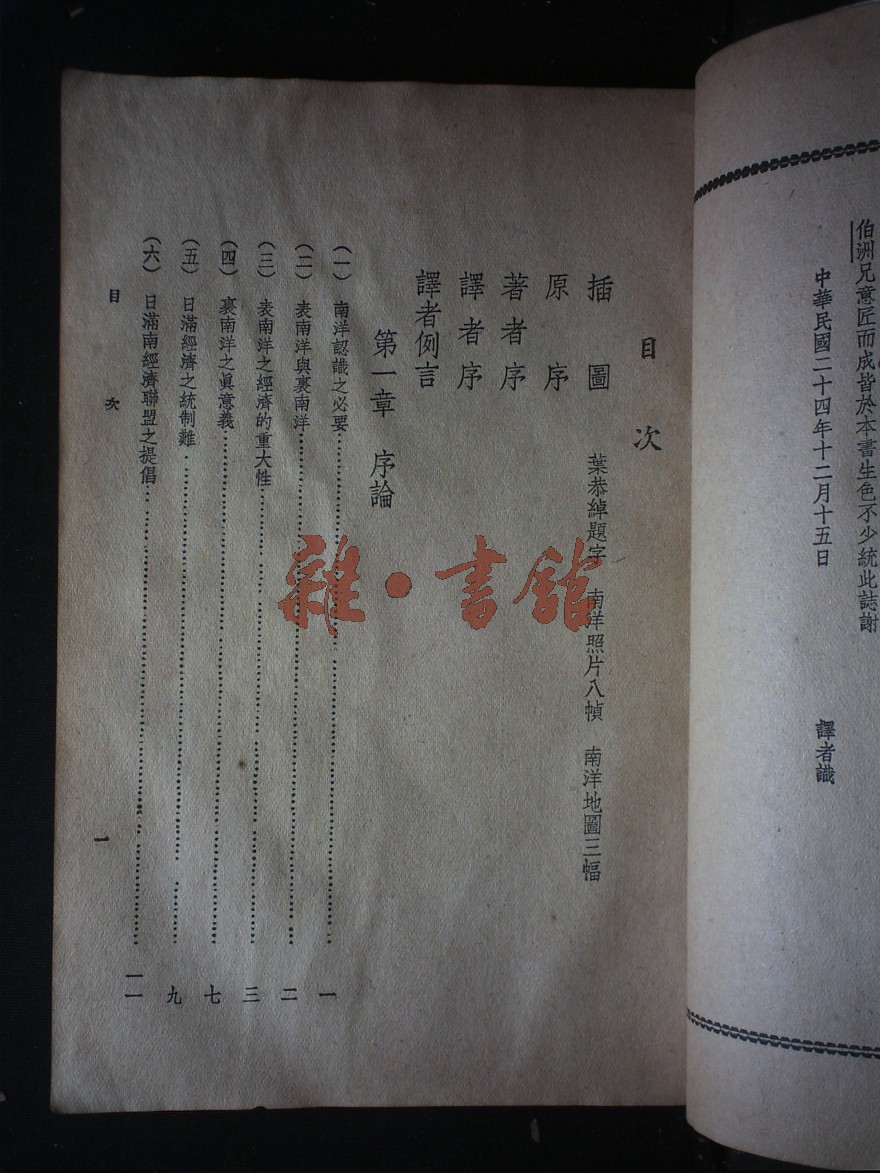 伯洲兄意匠而成皆於本書生色不少統此誌謝
中華民國二十四年十二月十五日
譯者識
目次
插圖 葉恭綽題字 南洋照片八幀 南洋地圖三幅
原序
著者序
譯者序
譯者例言
第一章 序論
(一) 南洋認識之必要 一
(二) 表南洋與裏南洋 二
(三) 表南洋之經濟的重大性 三
(四) 裏南洋之眞意義 七
(五) 日滿經濟之統制難 九
(六) 日滿南經濟聯盟之提倡 一一
目次
一
雜·書館